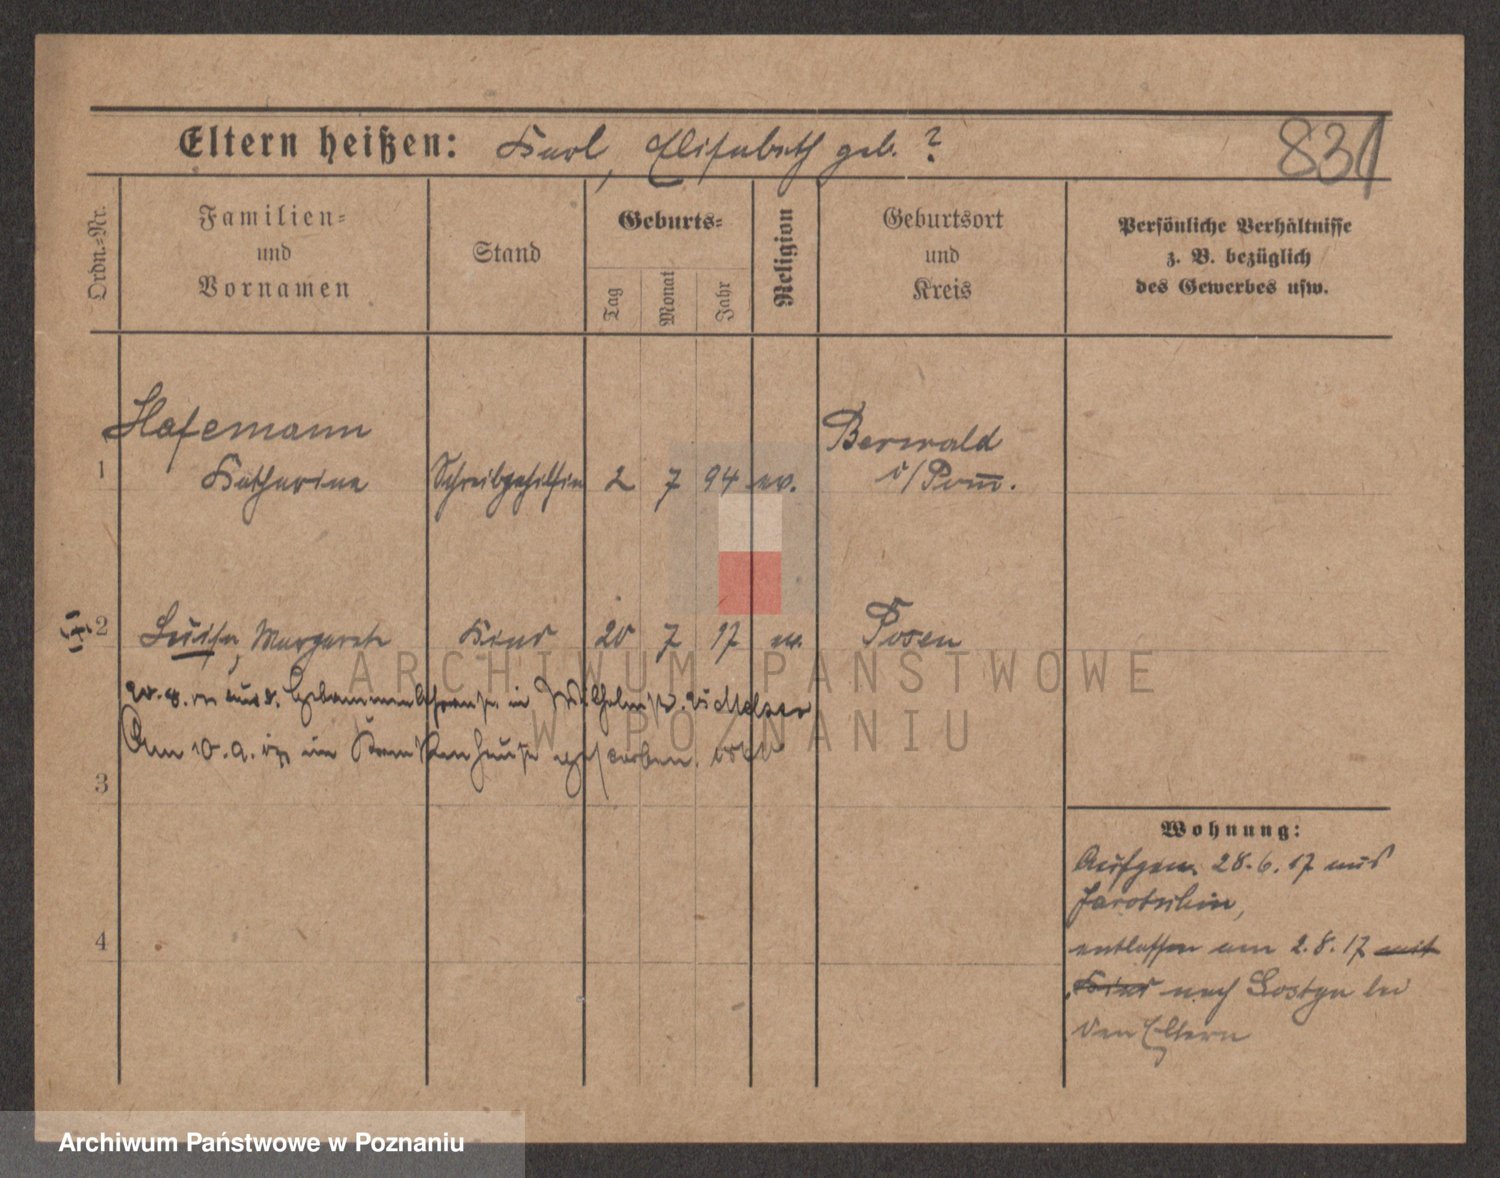 Eltern heißen: Karl, Elisabeth geb. ?
831
Ordn.=Nr.
Familien=
und
Vornamen
Stand
Geburts=
Tag
Monat
Jahr
Religion
Geburtsort
und
Kreis
Persönliche Verhältnisse
z. B. bezüglich
des Gewerbes usw.
Hasemann
Berwald
1 Katharina Schreibgehilfin 2 7 94 ev. i/Pom̅.
2 Luise, Margarete Kind 20 7 17 ev. Posen
aus d. Hebammen in
Am 10.9. 17 im Krankenhause gestorben.
3
4
Wohnung:
Aufgen. 28.6.17 aus
Jarotschin,
entlassen am 2.8.17 mit
Kind nach Gostyn bei
den Eltern
ARCHIWUM PAŃSTWOWE
W POZNANIU
Archiwum Państwowe w Poznaniu